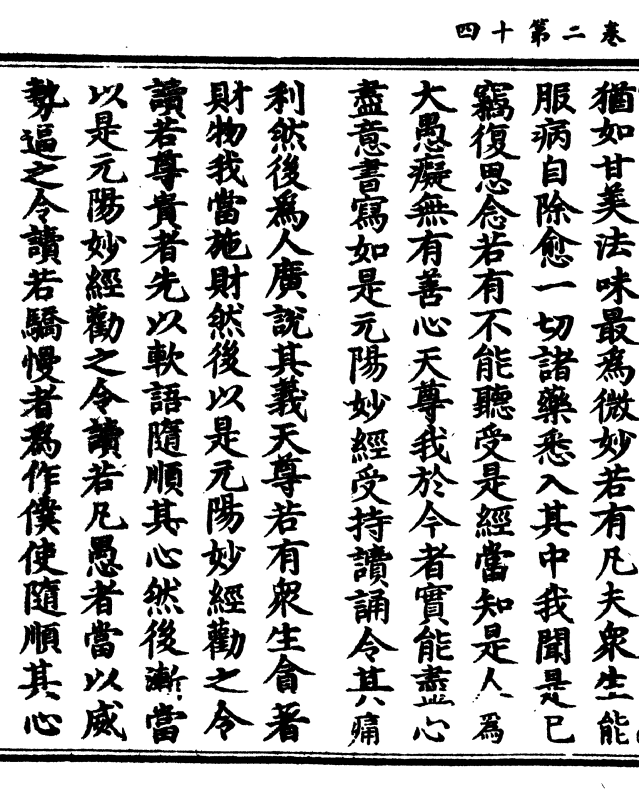 卷二第十四
猶如甘美法味最為微妙若有凡夫衆生能
服病自除愈一切諸藥悉入其中我聞是已
竊復思念若有不能聽受是經當知是人為
大愚癡無有善心天尊我於今者實能盡心
盡意書寫如是元陽妙經受持讀誦令其痛
利然後為人廣說其義天尊若有衆生貪著
財物我當施財然後以是元陽妙經勸之令
讀若尊貴者先以軟語隨順其心然後漸當
以是元陽妙經勸之令讀若凡愚者當以威
勢逼之令讀若驕慢者為作僕使隨順其心